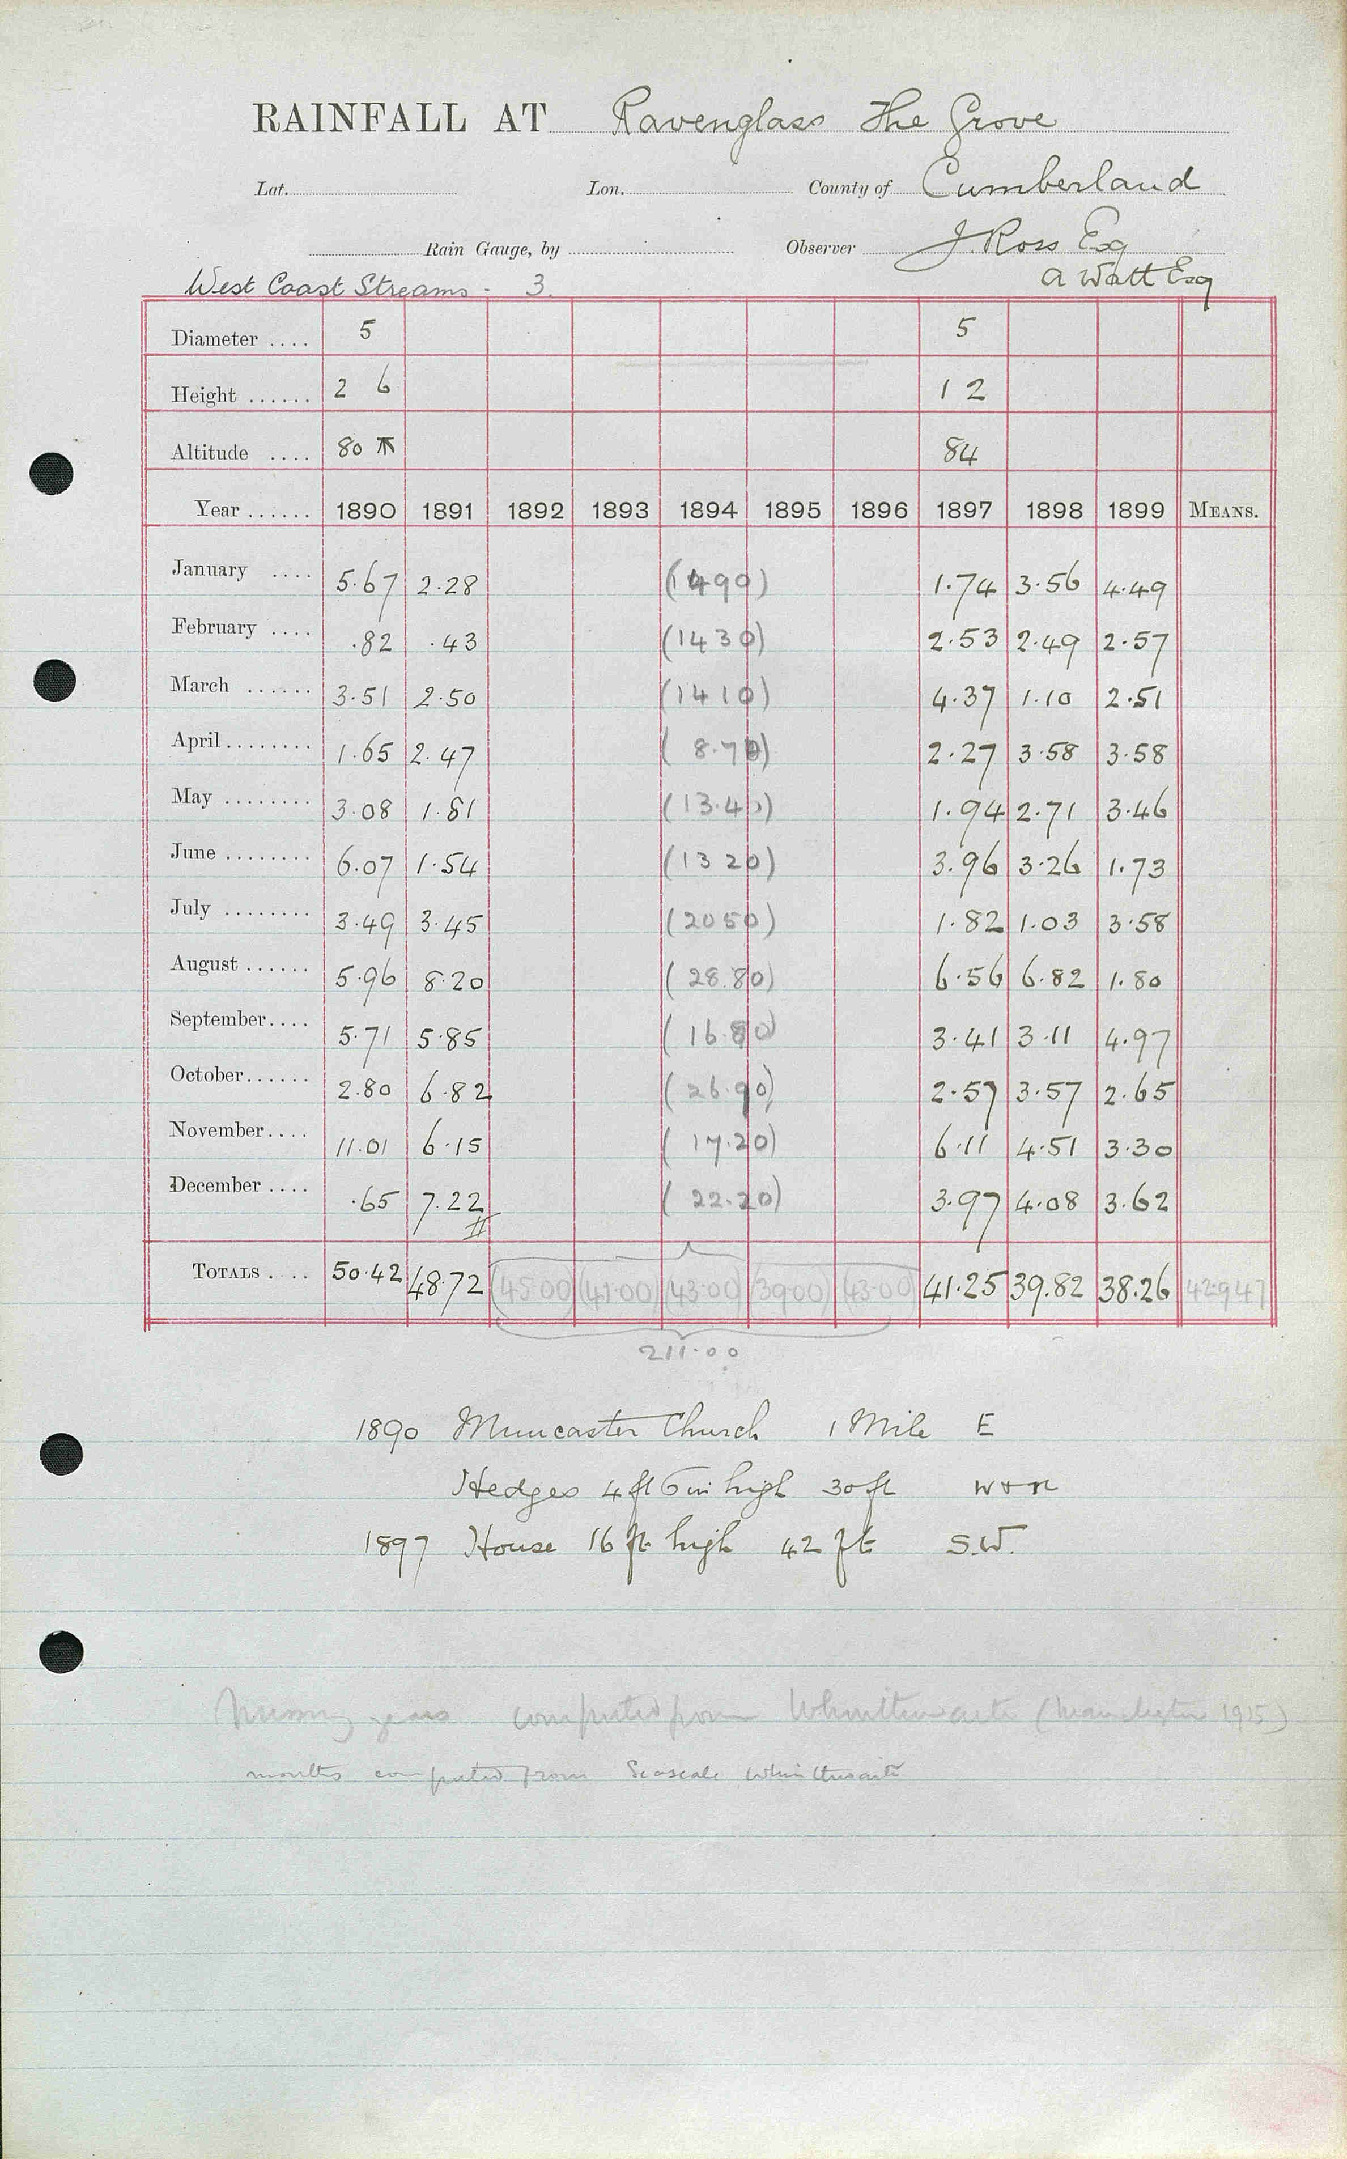 RAINFALL AT Ravenglass The Grove
Lat. Lon. County of Cumberland
Rain Gauge, by Observer J. Ross Esq
West Coast Streams - 3. A Watt Esq
Diameter .... 5 5
Height ...... 2 6 1 2
Altitude .... 80 84
Year ...... 1890 1891 1892 1893 1894 1895 1896 1897 1898 1899 MEANS.
January .... 5.67 2.28 (1490) 1.74 3.56 4.49
February .... .82 .43 (1430) 2.53 2.49 2.57
March ...... 3.51 2.50 (1410) 4.37 1.10 2.51
April ........ 1.65 2.47 (8.70) 2.27 3.58 3.58
May ........ 3.08 1.81 (13.40) 1.94 2.71 3.46
June ........ 6.07 1.54 (1320) 3.96 3.26 1.73
July ........ 3.49 3.45 (2050) 1.82 1.03 3.58
August ...... 5.96 8.20 (28.80) 6.56 6.82 1.80
September.... 5.71 5.85 (16.80) 3.41 3.11 4.97
October...... 2.80 6.82 (26.90) 2.57 3.57 2.65
November.... 11.01 6.15 (17.20) 6.11 4.51 3.30
December .... .65 7.22 (22.20) 3.97 4.08 3.62
TOTALS .... 50.42 48.72 (45.00) (41.00) (43.00) (39.00) (43.00) 41.25 39.82 38.26 42.947
211.00
1890 Muncaster Church 1 Mile E
Hedges 4 ft 6 in high 30 ft W + N
1897 House 16 ft high 42 ft S.W.
Missing years computed from Whinthwaite (Manchester 1915)
months computed from Seascale Whinthwaite